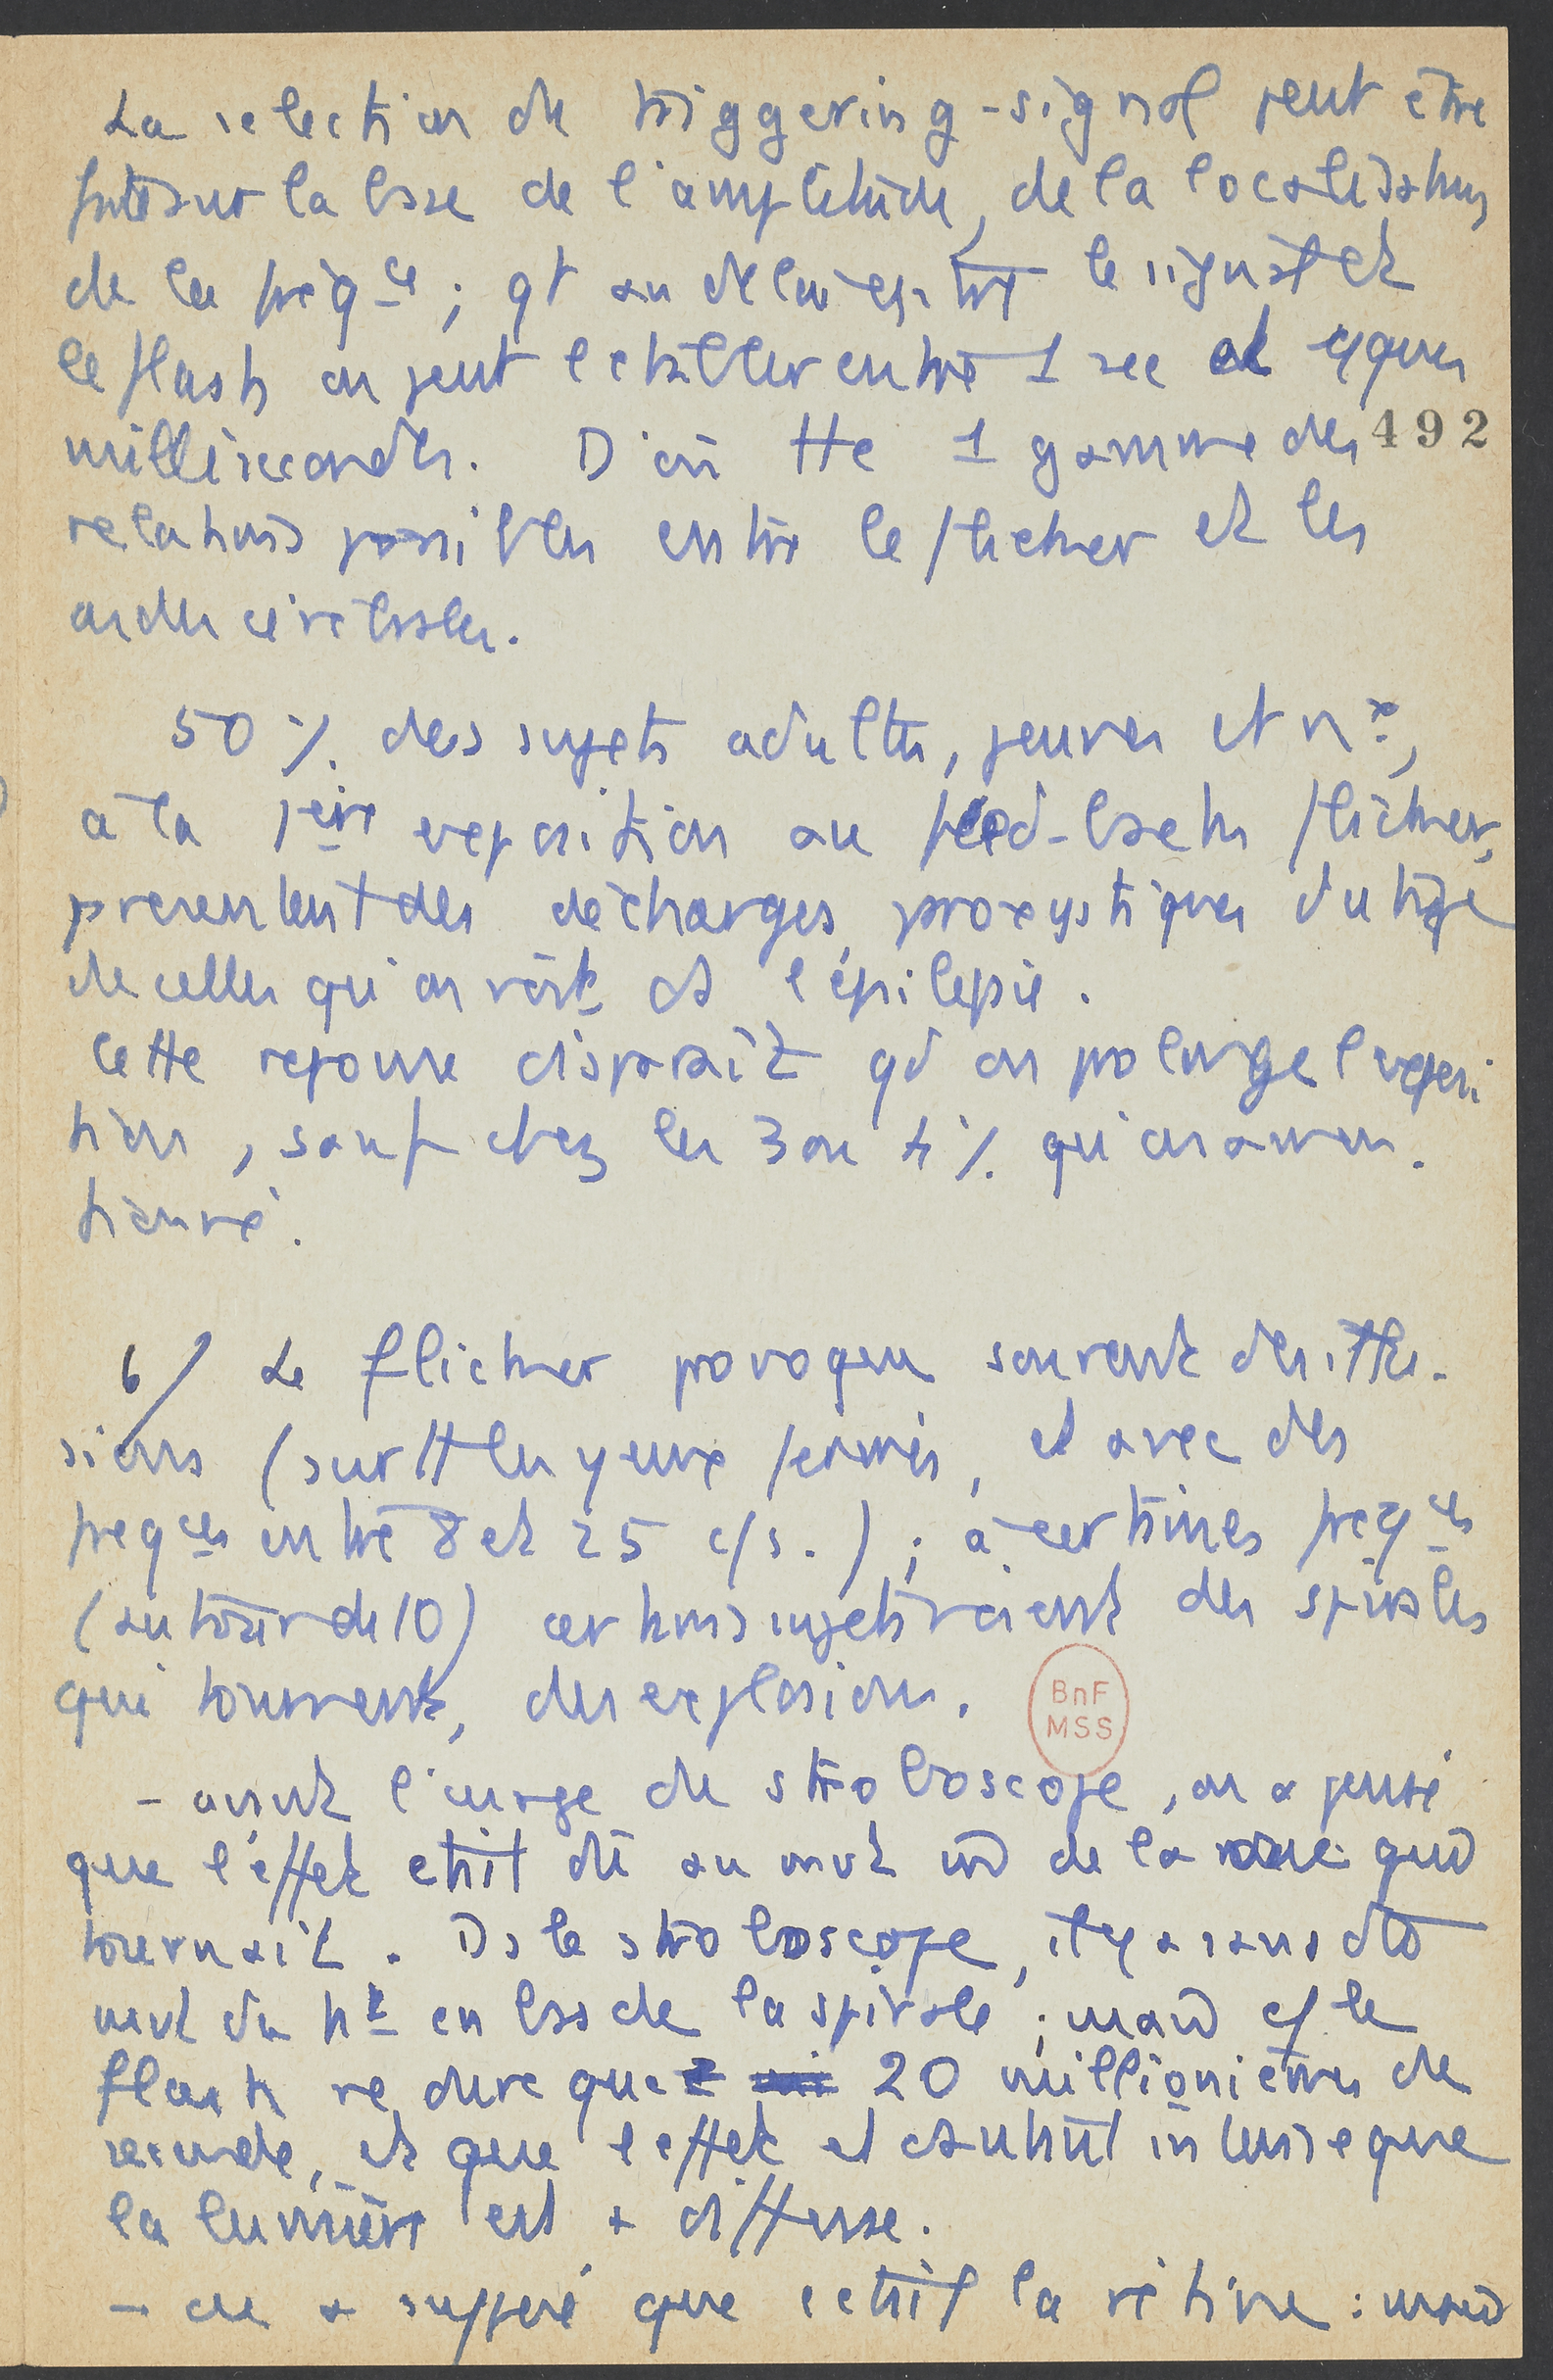 La selection du triggering-signal peut être
faite sur la base de l'amplitude, de la localisation,
de la fréqce ; qt au délai entre le signal et
le flash on peut l'etaller entre 1 sec et qques
millisecondes. D'où tte 1 gamme des 492
relations possibles entre le flicker et les
ondes cérébrales.
50 % des sujets adultes, jeunes et nx,
à la 1ère exposition au feed-back flicker,
presentent des décharges paroxystiques du type
de celles qu'on voit ds l'épilepsie.
Cette reponse disparait qd on prolonge l'exposi
tion, sauf chez les 3 ou 4 % qu'on a men.
tionné.
6/ Le flicker provoque souvent des illu-
sions (surtt les yeux fermés, et avec des
freqces entre 8 et 25 c/s.) ; à certaines freqces
(autour de 10) certains sujets voient des spirales
qui tournent, des explosions.
BnF
MSS
- avant l'usage du stroboscope, on a pensé
que l'effet etait dû au mvt de la roue qui
tournait. Ds le stroboscope, il y a sans dte
mvt du ht en bas de la spirale ; mais le
flash ne dure que 20 millionièmes de
seconde, et que l'effet est autant intense que
la lumière est + diffuse.
- on a suggeré que c'etait la rétine : mais